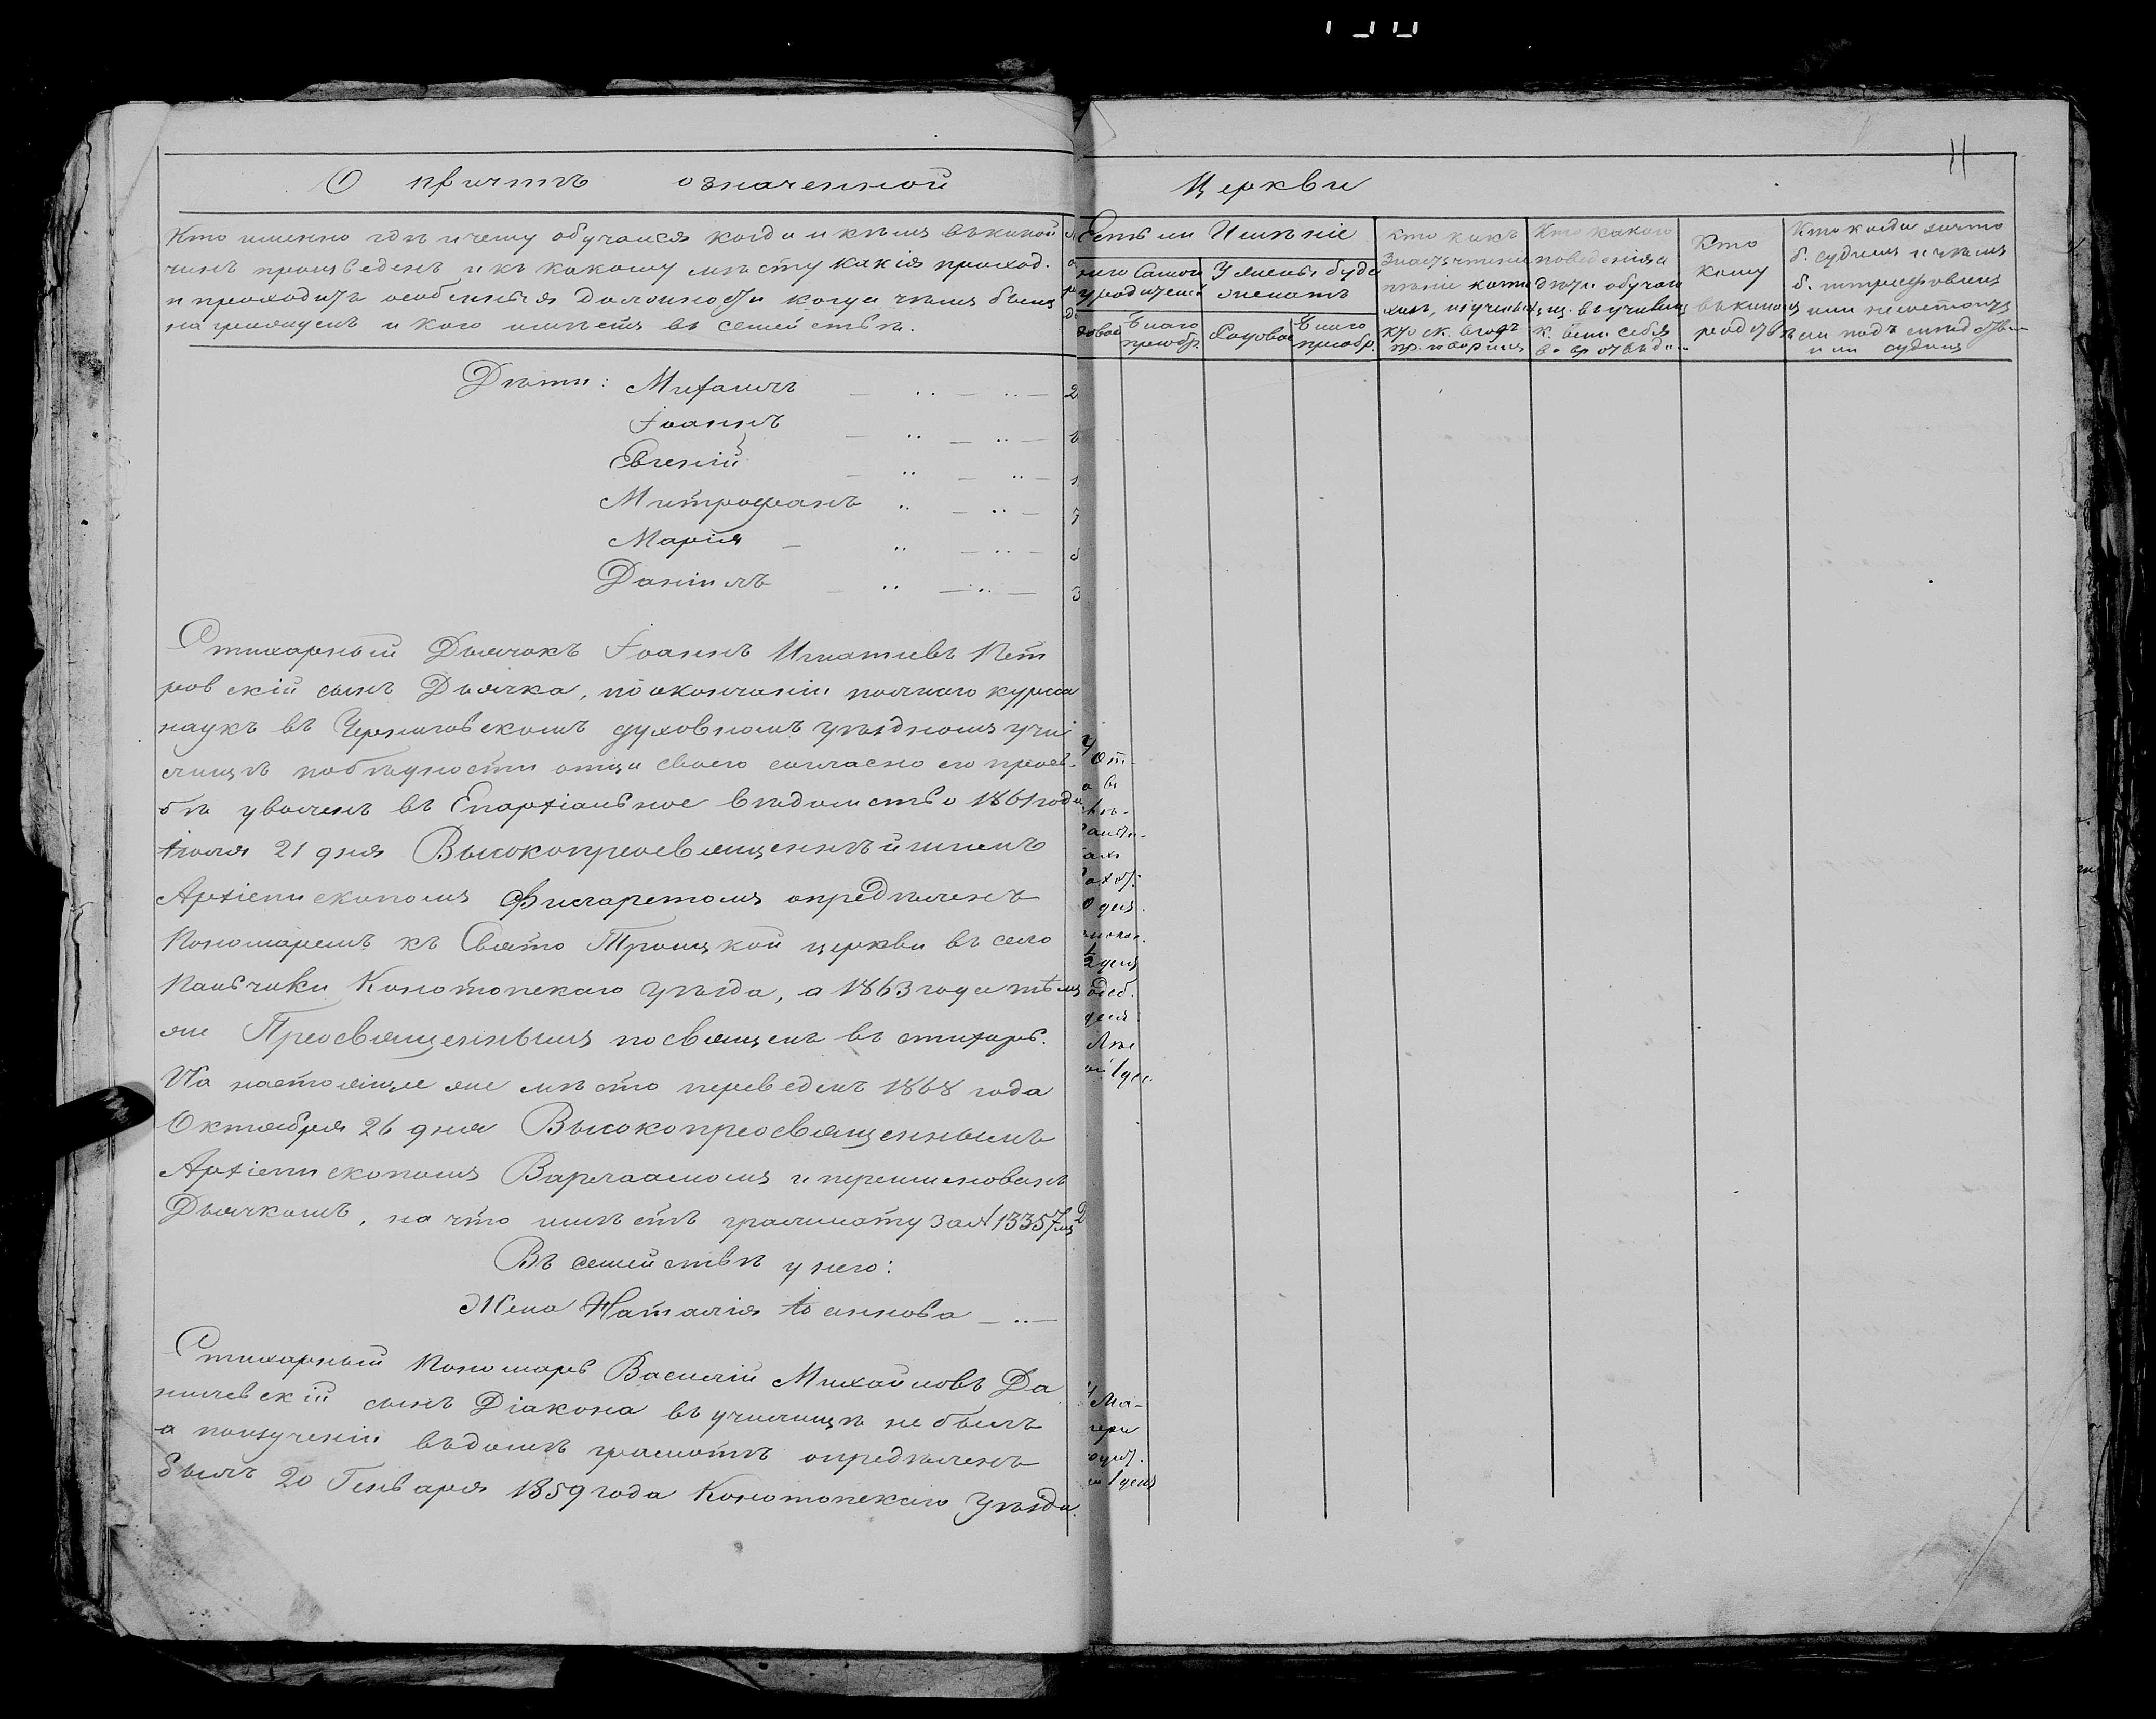 11
О причтѣ означенной
Церкви
Кто именно гдѣ и чему обучался когда и кѣмъ въ какой
чинъ произведенъ и къ какому мѣсту какія проход.
и проходитъ особенныя должности когда чѣмъ былъ
награжденъ и кого имѣетъ въ семействѣ.
Есть ли Имѣніе
него самого
у родителей
У жены буде
женатъ
довое
Благо
приобр.
Родовое
Благо
приобр.
Кто какъ
знаетъ чтеніе
пѣніе кати
Кто какого
поведенія а
дѣти обучаю
к. вели себя
Кто
кому
въ какомъ
родствѣ
Кто когда за что
б. судимъ и чѣмъ
б. штрафованъ
или не состоитъ
ли подъ слѣдств
или судимъ
Дѣти: Михаилъ
Іоаннъ
Евгеній
Митрофанъ
Марія
Даніилъ
Стихарный Дьячокъ Іоаннъ Игнатіевъ Пет
ровскій сынъ Дьячка, по окончаніи полнаго курса
наукъ въ Черниговскомъ духовномъ уѣздномъ учи
лищѣ по бѣдности отца своего согласно его прось
бѣ уволенъ въ Епархіальное вѣдомство 1861 года
Іюля 21 дня Высокопреосвященнѣйшимъ
Архіепископомъ Филаретомъ опредѣленъ
Пономаремъ къ Свято Троицкой церкви въ село
Пальчики Конотопскаго уѣзда, а 1863 года тѣмъ
же Преосвященнымъ посвященъ въ стихарь.
На настоящее же мѣсто переведенъ 1868 года
Октября 26 дня Высокопреосвященнымъ
Архіепископомъ Варлаамомъ и переименованъ
Дьячкомъ, на что имѣетъ граммату за № 13357мъ
Въ семействѣ у него:
Жена Наталія Іоаннова
Стихарный Пономарь Василій Михайловъ Да
нилевскій сынъ Діакона въ училищѣ не былъ
а по изученіи въ домѣ грамотѣ опредѣленъ
былъ 20 Генваря 1859 года Конотопскаго Уѣзда